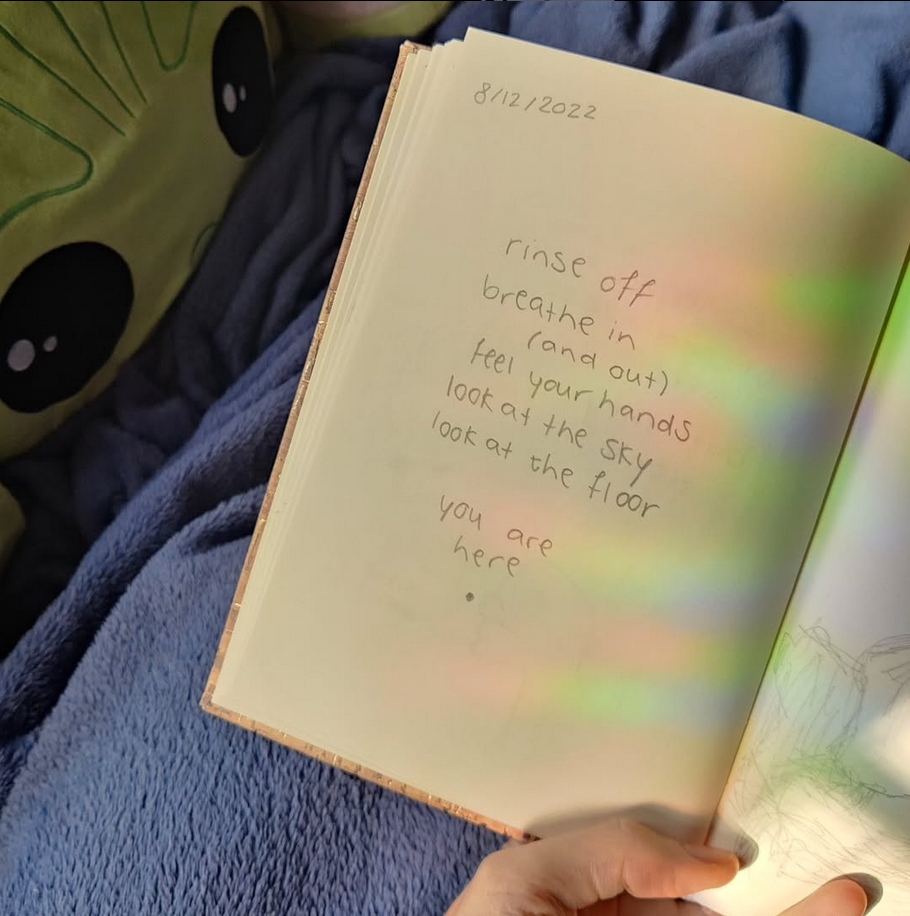 8/12/2022
rinse off
breathe in
(and out)
feel your hands
look at the sky
look at the floor
you are
here